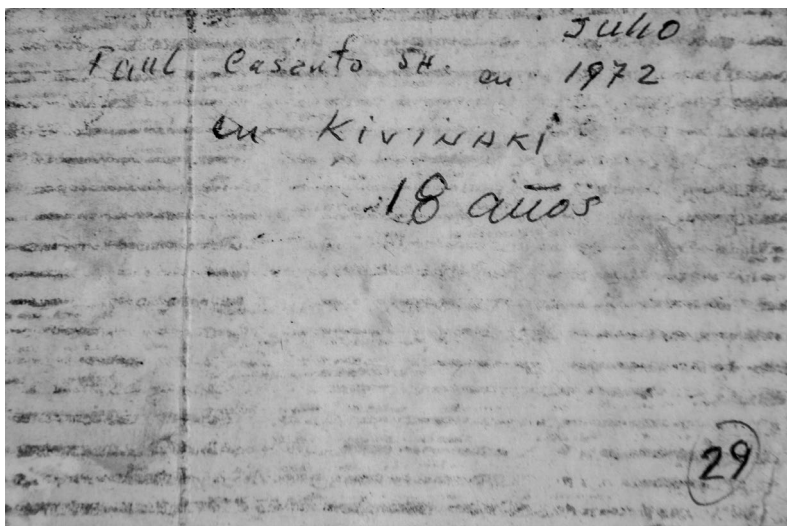 Julio
Raul Casanto SH. en 1972
en KiviNAKi
18 años
29